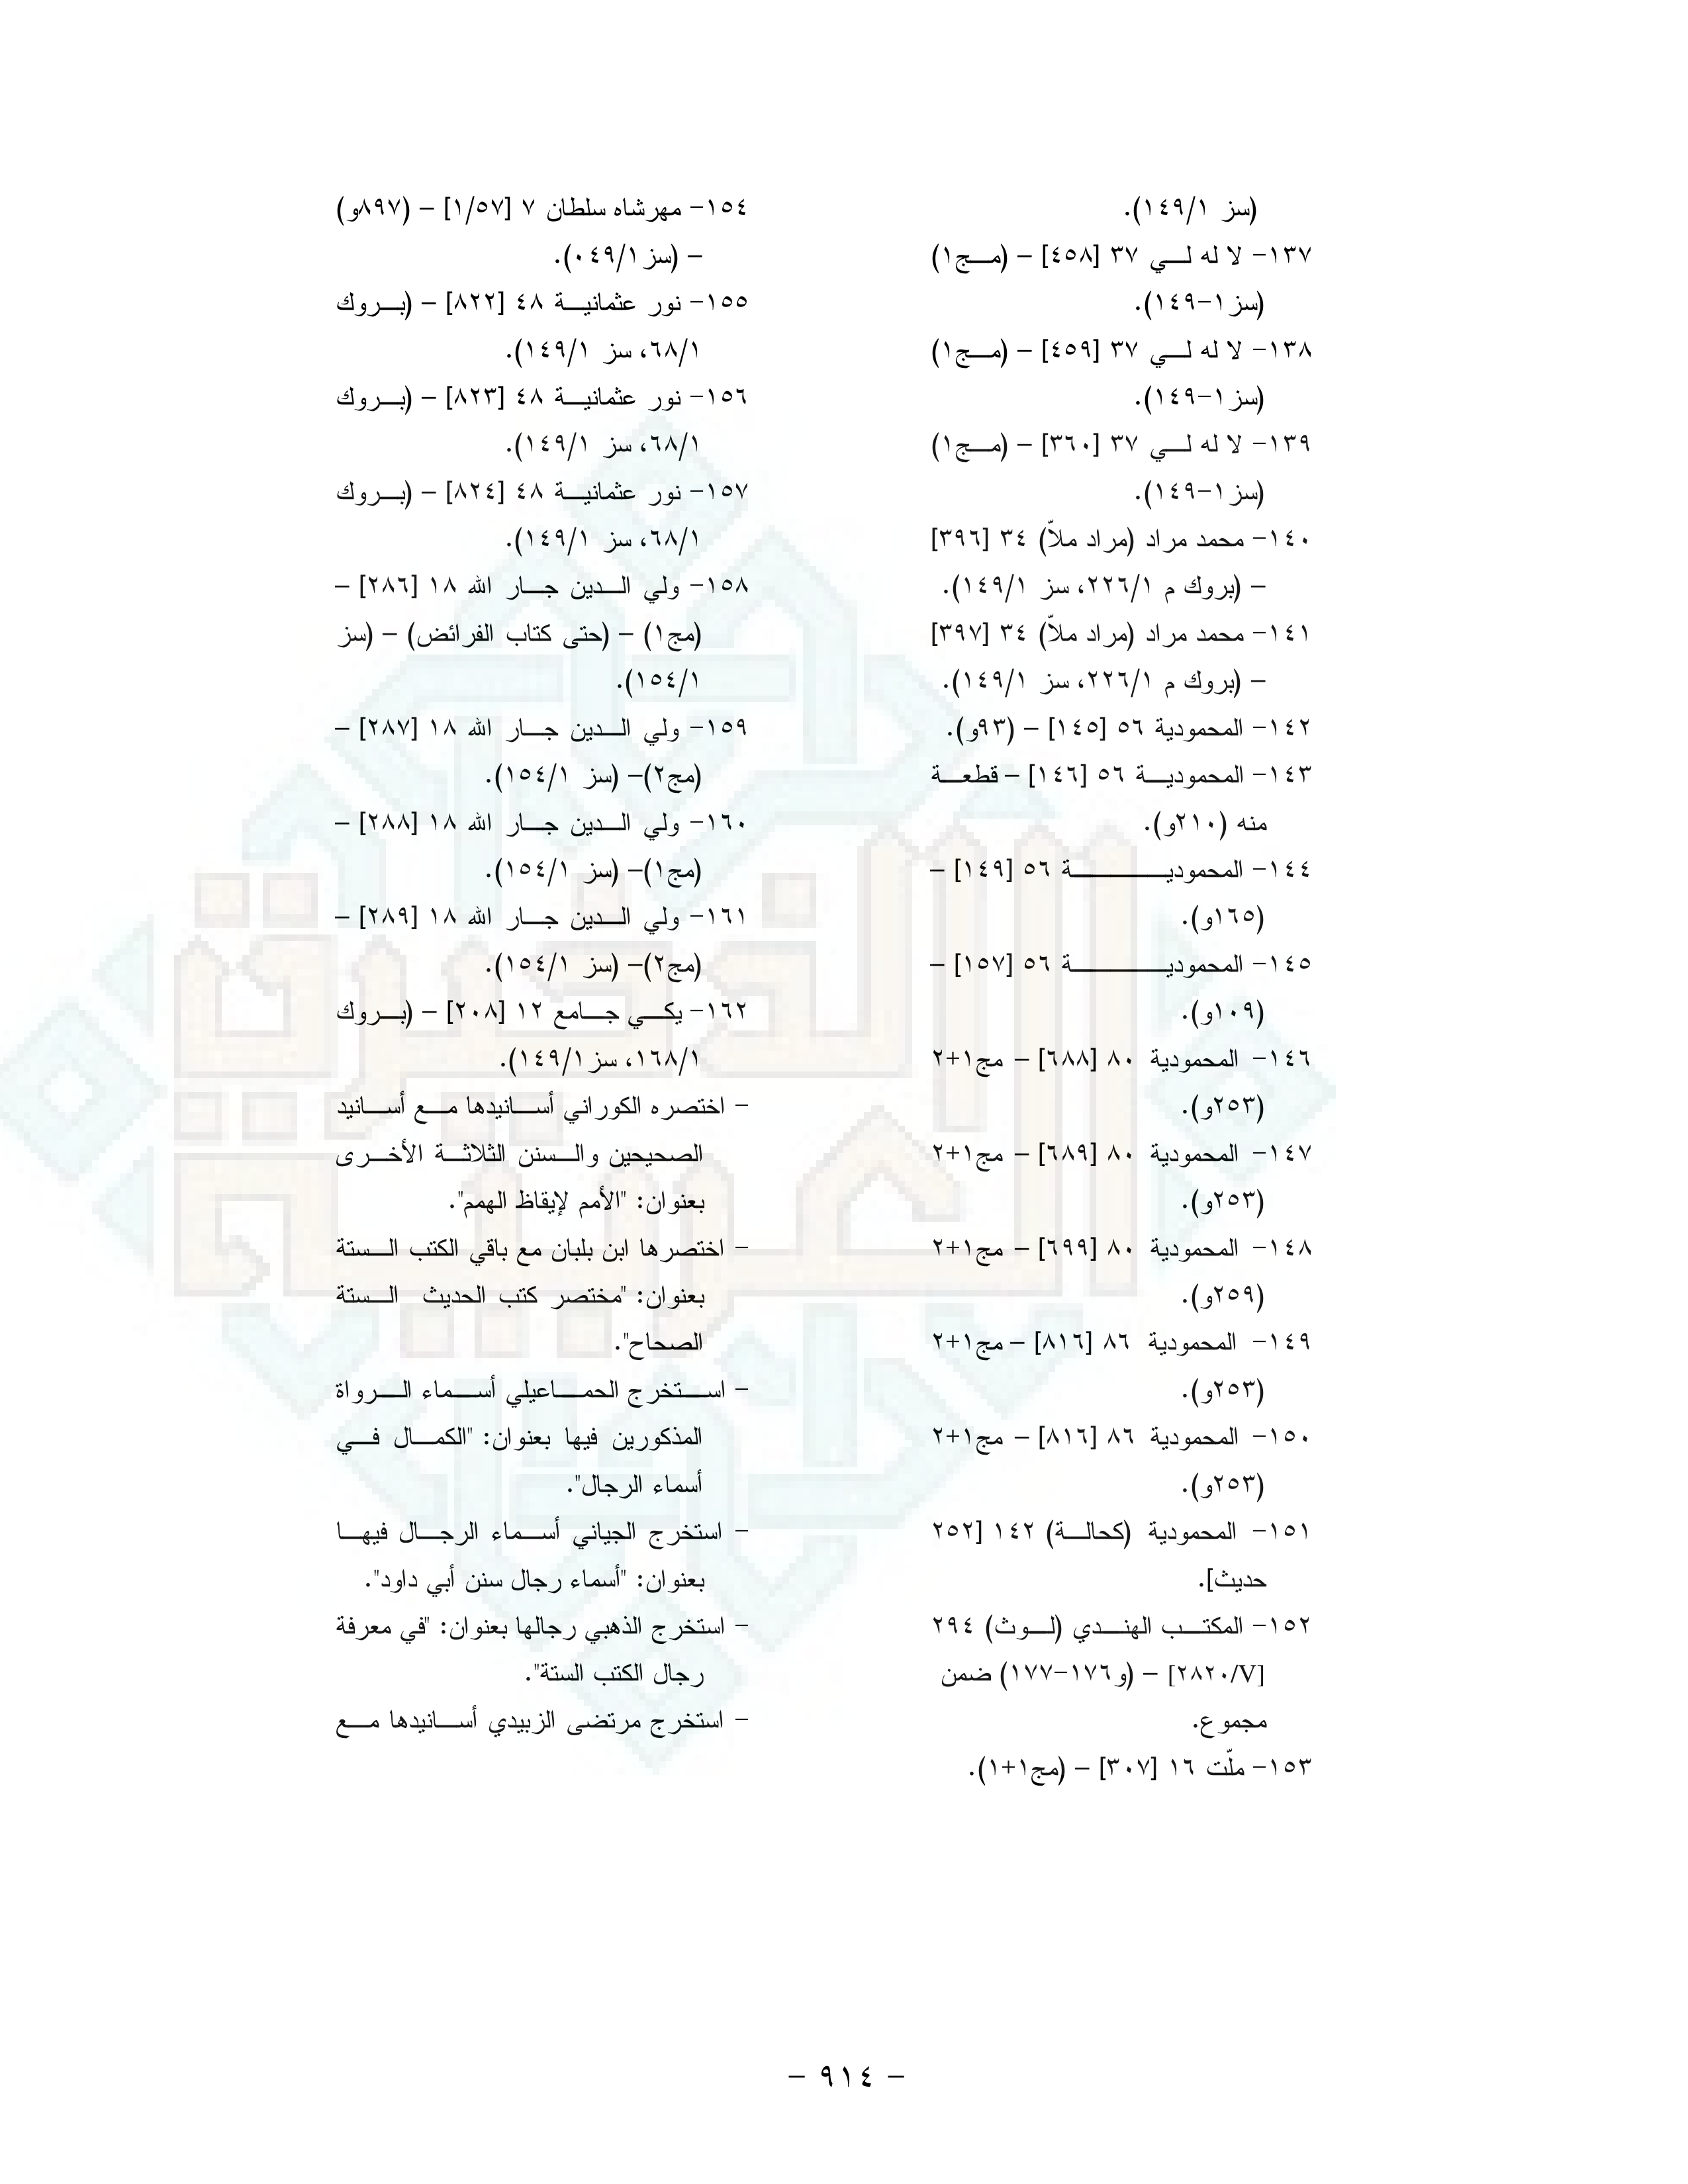 (سز ١/١٤٩).
١٣٧- لا له لـــي ٣٧ [٤٥٨] – (مـــج١)
(سز١-١٤٩).
١٣٨- لا له لـــي ٣٧ [٤٥٩] – (مـــج١)
(سز١-١٤٩).
١٣٩- لا له لـــي ٣٧ [٣٦٠] – (مـــج١)
(سز١-١٤٩).
١٤٠- محمد مراد (مراد ملاّ) ٣٤ [٣٩٦]
– (بروك م ١/٢٢٦، سز ١/١٤٩).
١٤١- محمد مراد (مراد ملاّ) ٣٤ [٣٩٧]
– (بروك م ١/٢٢٦، سز ١/١٤٩).
١٤٢- المحمودية ٥٦ [١٤٥] – (٩٣و).
١٤٣- المحموديـــة ٥٦ [١٤٦] – قطعـــة
منه (٢١٠و).
١٤٤- المحموديـــــــــــة ٥٦ [١٤٩] –
(١٦٥و).
١٤٥- المحموديـــــــــــة ٥٦ [١٥٧] –
(١٠٩و).
١٤٦- المحمودية ٨٠ [٦٨٨] – مج١+٢
(٢٥٣و).
١٤٧- المحمودية ٨٠ [٦٨٩] – مج١+٢
(٢٥٣و).
١٤٨- المحمودية ٨٠ [٦٩٩] – مج١+٢
(٢٥٩و).
١٤٩- المحمودية ٨٦ [٨١٦] – مج١+٢
(٢٥٣و).
١٥٠- المحمودية ٨٦ [٨١٦] – مج١+٢
(٢٥٣و).
١٥١- المحمودية (كحالـــة) ١٤٢ [٢٥٢
حديث].
١٥٢- المكتـــب الهنـــدي (لـــوث) ٢٩٤
[٢٨٢٠/V] – (و١٧٦-١٧٧) ضمن
مجموع.
١٥٣- ملّت ١٦ [٣٠٧] – (مج١+١).
١٥٤- مهرشاه سلطان ٧ [١/٥٧] – (٨٩٧و)
– (سز١/٠٤٩).
١٥٥- نور عثمانيـــة ٤٨ [٨٢٢] – (بـــروك
١/٦٨، سز ١/١٤٩).
١٥٦- نور عثمانيـــة ٤٨ [٨٢٣] – (بـــروك
١/٦٨، سز ١/١٤٩).
١٥٧- نور عثمانيـــة ٤٨ [٨٢٤] – (بـــروك
١/٦٨، سز ١/١٤٩).
١٥٨- ولي الـــدين جـــار الله ١٨ [٢٨٦] –
(مج١) – (حتى كتاب الفرائض) – (سز
١/١٥٤).
١٥٩- ولي الـــدين جـــار الله ١٨ [٢٨٧] –
(مج٢)– (سز ١/١٥٤).
١٦٠- ولي الـــدين جـــار الله ١٨ [٢٨٨] –
(مج١)– (سز ١/١٥٤).
١٦١- ولي الـــدين جـــار الله ١٨ [٢٨٩] –
(مج٢)– (سز ١/١٥٤).
١٦٢- يكـــي جـــامع ١٢ [٢٠٨] – (بـــروك
١/١٦٨، سز١/١٤٩).
- اختصره الكوراني أســـانيدها مـــع أســـانيد
الصحيحين والـــسنن الثلاثـــة الأخـــرى
بعنوان: "الأمم لإيقاظ الهمم".
- اختصرها ابن بلبان مع باقي الكتب الـــستة
بعنوان: "مختصر كتب الحديث الـــستة
الصحاح".
- اســـتخرج الحمـــاعيلي أســـماء الـــرواة
المذكورين فيها بعنوان: "الكمـــال فـــي
أسماء الرجال".
- استخرج الجياني أســـماء الرجـــال فيهـــا
بعنوان: "أسماء رجال سنن أبي داود".
- استخرج الذهبي رجالها بعنوان: "في معرفة
رجال الكتب الستة".
- استخرج مرتضى الزبيدي أســـانيدها مـــع
– ٩١٤ –